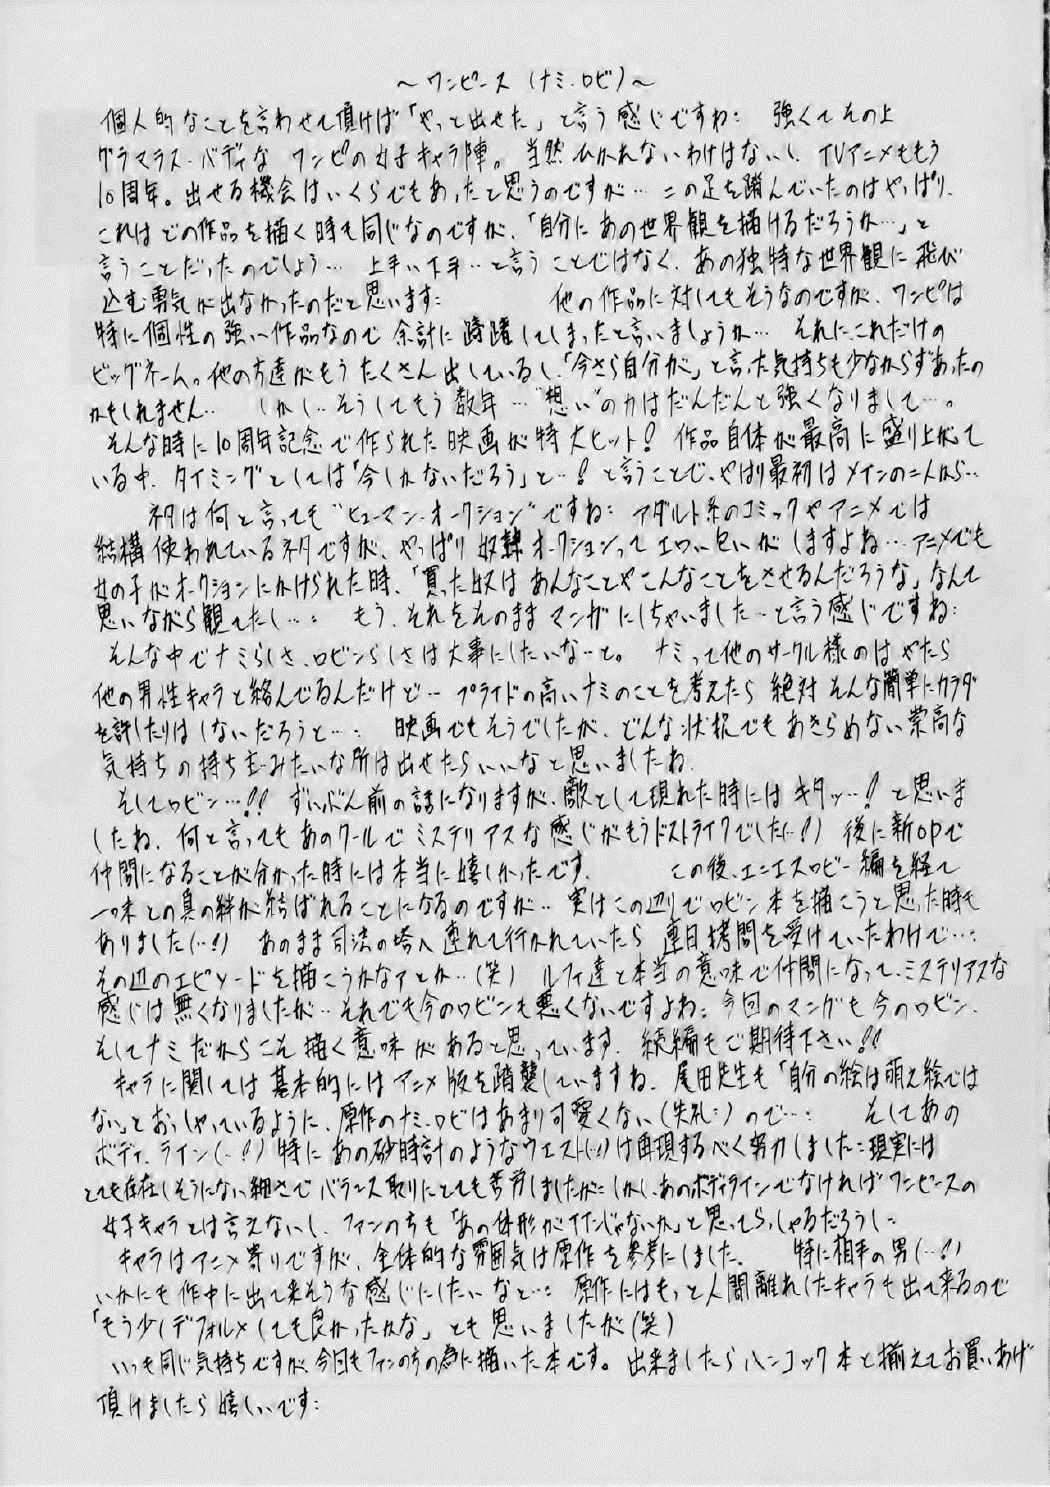 ～ワンピース（ナミ・ロビ）～
個人的なことを言わせて頂けば「やっと出せた」と言う感じですね： 強くてその上
グラマラス・バディな ワンピの女子キャラ陣。当然ひかれないわけはないし、TVアニメももう
10周年。出せる機会はいくらでもあったと思うのですが… 二の足を踏んでいたのはやっぱり、
これはどの作品を描く時も同じなのですが、「自分にあの世界観を描けるだろうか…」と
言うことだったのでしょう… 上手い下手‥と言うことではなく、あの独特な世界観に飛び
込む勇気が出なかったのだと思います： 他の作品に対してもそうなのですが、ワンピは
特に個性の強い作品なので余計に躊躇してしまったと言いましょうか… それにこれだけの
ビッグネーム。他の方達がもうたくさん出しているし、「今さら自分が」と言った気持ちも少なからずあったの
かもしれません‥ しかし‥そうしてもう数年…“想い”の力はだんだんと強くなりまして…。
そんな時に10周年記念で作られた映画が特大ヒット！ 作品自体が最高に盛り上がって
いる中、タイミングとしては「今しかないだろう」と…！と言うことで、やはり最初はメインの二人から…
ネタは何と言っても“ヒューマン・オークション”ですね： アダルト系のコミックやアニメでは
結構使われているネタですが、やっぱり奴隷オークションってエロい匂いがしますよね… アニメでも
女の子がオークションにかけられた時、「買った奴はあんなことやこんなことをさせるんだろうな」なんて
思いながら観てたし…： もう、それをそのままマンガにしちゃいました…と言う感じですね：
そんな中でナミらしさ、ロビンらしさは大事にしたいな…と。 ナミって他のサークル様のはやたら
他の男性キャラと絡んでるんだけど… プライドの高いナミのことを考えたら絶対そんな簡単にカラダ
を許したりはしないだろうと…： 映画でもそうでしたが、どんな状況でもあきらめない崇高な
気持ちの持ち主みたいな所は出せたらいいなと思いましたね。
そしてロビン…!! ずいぶん前の話になりますが、敵として現れた時にはキタッ…！と思いま
したね。何と言ってもあのクールでミステリアスな感じがもうドストライクでした(…!) 後に新OPで
仲間になることが分かった時には本当に嬉しかったです。 この後、エニエスロビー編を経て
一味との真の絆が結ばれることになるのですが‥ 実はこの辺りでロビン本を描こうと思った時も
ありました(…!) あのまま司法の塔へ連れて行かれていたら連日拷問を受けていたわけで…：
その辺のエピソードを描こうかなァとか…(笑) ルフィ達と本当の意味で仲間になって、ミステリアスな
感じは無くなりましたが‥それでも今のロビンも悪くないですよね： 今回のマンガも今のロビン、
そしてナミだからこそ描く意味があると思っています。続編もご期待下さい!!
キャラに関しては基本的にはアニメ版を踏襲していますね。尾田先生も「自分の絵は萌え絵では
ない」とおっしゃっているように、原作のナミ・ロビはあまり可愛くない(失礼：)ので…： そしてあの
ボディ・ライン(…!) 特にあの砂時計のようなウエスト(…!)は再現するべく努力しました： 現実には
とても存在しそうにない細さでバランス取りにとても苦労しましたが： しかし、あのボディラインでなければワンピースの
女子キャラとは言えないし、ファンの方も「あの体形がイインじゃないか」と思ってらっしゃるだろうし：
キャラはアニメ寄りですが、全体的な雰囲気は原作を参考にしました。 特に相手の男(…!)
いかにも作中に出て来そうな感じにしたいなと…： 原作にはもっと人間離れしたキャラも出て来るので
「もう少しデフォルメしても良かったかな」とも思いましたが(笑)
いつも同じ気持ちですが、今回もファンの方の為に描いた本です。出来ましたらハンコック本と揃えてお買いあげ
頂けましたら嬉しいです：